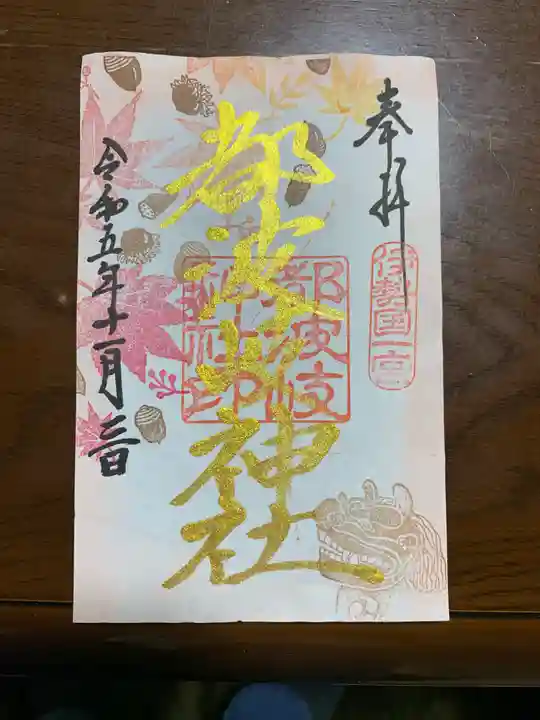 奉拝
伊勢国一宮
都波岐神社
都波岐
神社印
令和五年十一月三日